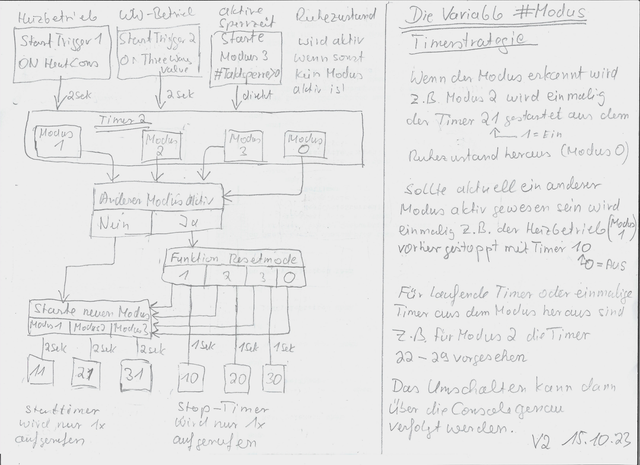 Heizbetrieb
WW-Betrieb
aktive
Sperrzeit
Ruhezustand
Start Trigger 1
ON HeatCons
Start Trigger 2
On Threeway
Valve
Starte
Modus 3
#Taktsperre>0
wird aktiv
wenn sonst
kein Modus
aktiv ist!
2sek
2sek
direkt
Timer 2
Modus
1
Modus
2
Modus
3
Modus
0
Anderer Modus Aktiv
Nein Ja
Funktion Resetmode
1 2 3 0
Starte neuen Modus
Modus1 Modus2 Modus3
2sek 2sek 2sek 1sek 1sek 1sek
11 21 31 10 20 30
Starttimer
wird nur 1x
aufgerufen
Stop-Timer
wird nur 1x
aufgerufen
Die Variable #Modus
Timerstrategie
Wenn der Modus erkannt wird
z.B. Modus 2 wird einmalig
der Timer 21 gestartet aus dem
1=Ein
Ruhezustand heraus (Modus 0)
Sollte aktuell ein anderer
Modus aktiv gewesen sein wird
einmalig z.B. der Heizbetrieb (Modus 1)
vorher gestoppt mit Timer 10
0=AUS
Für laufende Timer oder einmalige
Timer aus dem Modus heraus sind
z.B. für Modus 2 die Timer
22-29 vorgesehen
Das Umschalten kann dann
über die Console genau
verfolgt werden.
V2 15.10.23